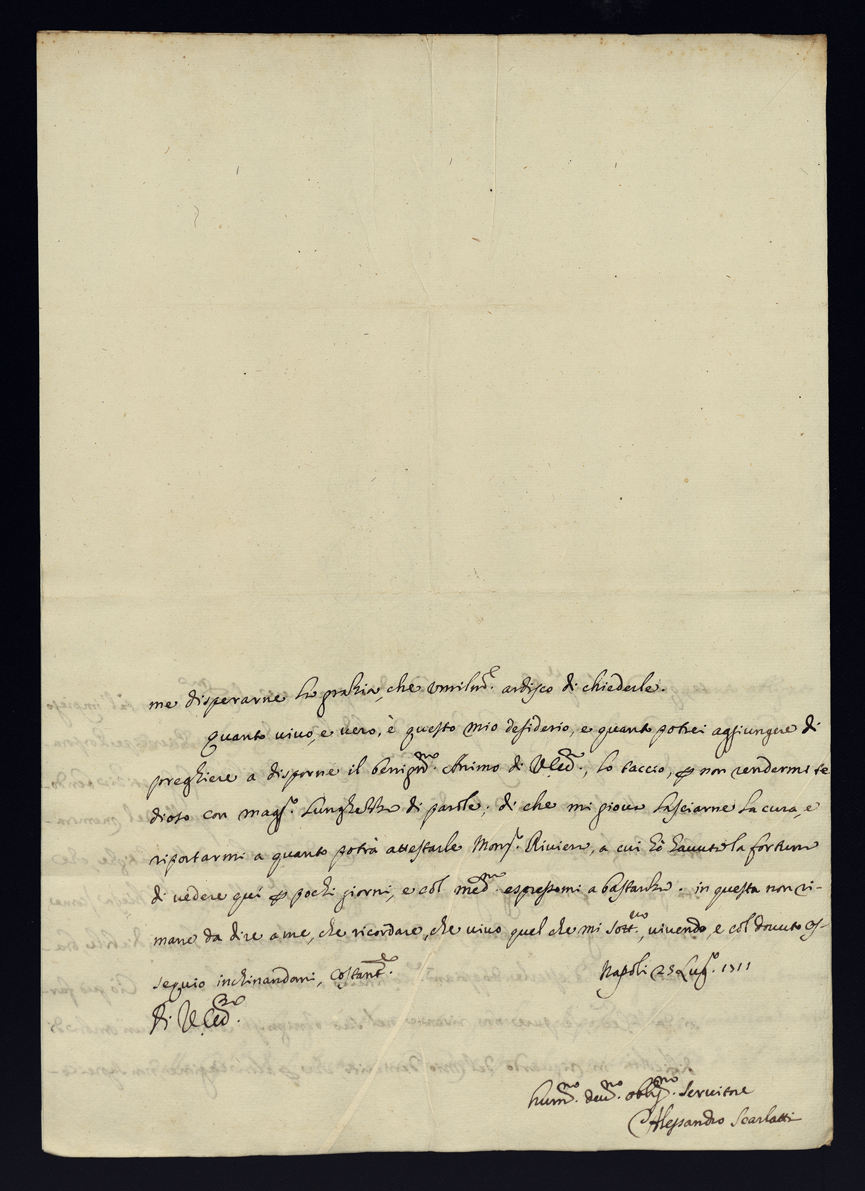 me disperarne la grazia, che umilm.te ardisco di chiederle.
Quanto vivo, e vero, è questo mio desiderio, e quanto potrei aggiungere di
preghiere a disporne il benign.mo Animo di V. , lo taccio, p non rendermi te
dioso con magg.r lunghezza di parole; di che mi giova lasciarne la cura, e
riportarmi a quanto potrà attestarle Mons.r Riviera, a cui hò havuta la fortuna
di vedere qui p pochi giorni, e col med.mo espressomi a bastanza. in questa non ri-
mane da dire a me, che ricordare, che vivo quel che mi sott.vo, vivendo, e col dovuto os-
sequio inchinandomi, costant.te Napoli Lug.o 1711
Di V.
hum.mo dev.mo obblig.mo Servitore
Alessandro Scarlatti